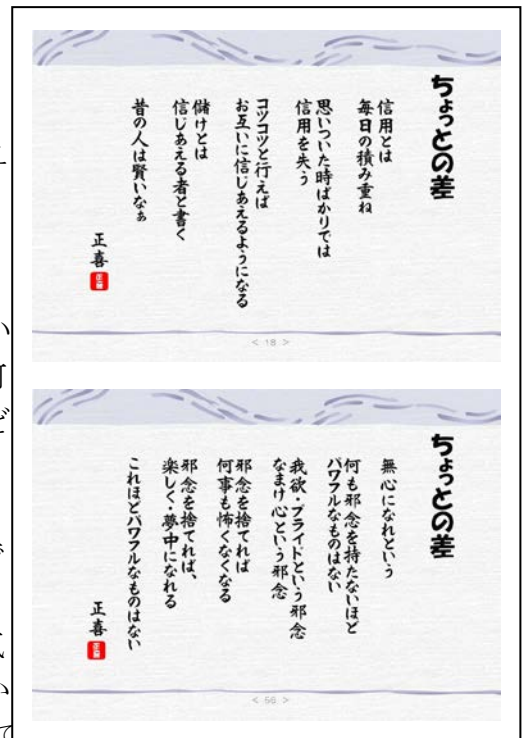 ちょっとの差
信用とは
毎日の積み重ね
思いついた時ばかりでは
信用を失う
コツコツと行えば
お互いに信じあえるようになる
儲けとは
信じあえる者と書く
昔の人は賢いなぁ
正喜
< 18 >
ちょっとの差
無心になれという
何も邪念を持たないほど
パワフルなものはない
我欲・プライドという邪念
なまけ心という邪念
邪念を捨てれば
何事も怖くなくなる
邪念を捨てれば、
楽しく・夢中になれる
これほどパワフルなものはない
正喜